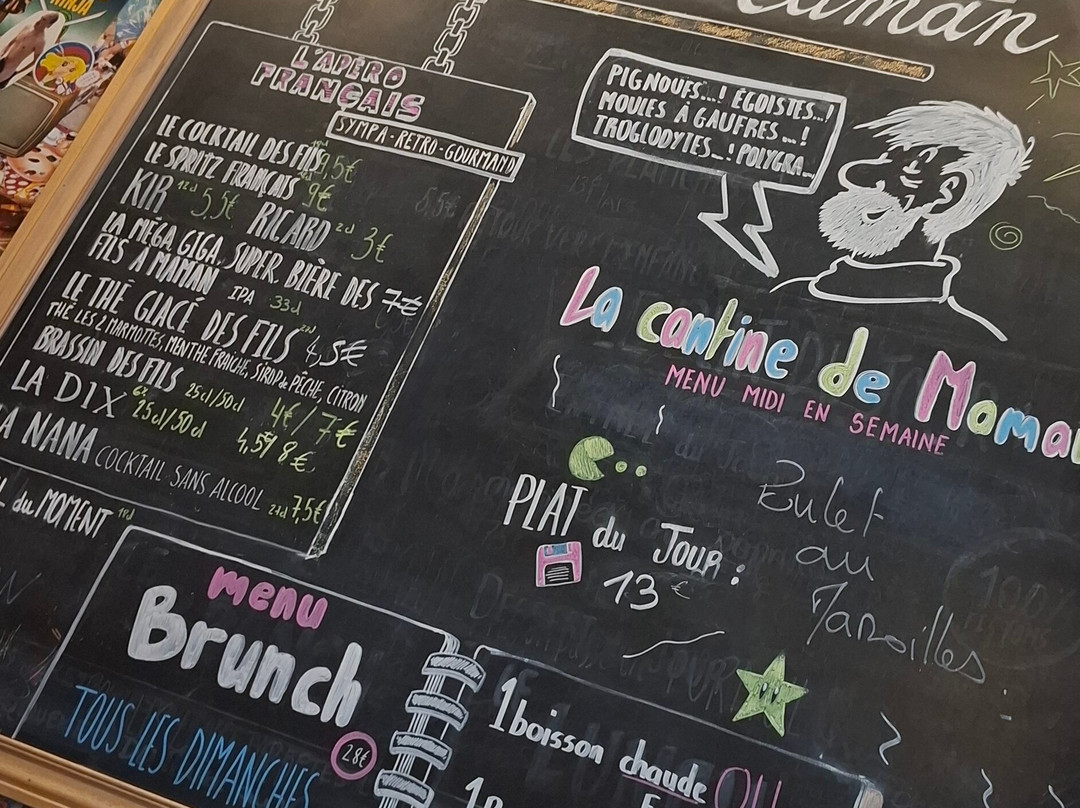 NINJA
aman
L'APÉRO
FRANÇAIS
SYMPA-RETRO-GOURMAND
LE COCKTAIL DES FILS 9,5€
LE SPRITZ FRANÇAIS 9€
KIR 12cl 5,5€ RICARD 2cl 3€
LA MÉGA, GIGA, SUPER, BIÈRE DES
FILS À MAMAN IPA 33cl 7€
LE THÉ GLACÉ DES FILS 4,5€
THÉ LES 2 MARMOTTES, MENTHE FRAÎCHE, SIROP de PÊCHE, CITRON
BRASSIN DES FILS 25cl/50cl 4€/7€
LA DIX 25cl/50cl 4,5/8€
A NANA COCKTAIL SANS ALCOOL 27cl 7,5€
L du MOMENT
menu
Brunch
TOUS LES DIMANCHES
28€
PIGNOUFS...! ÉGOÏSTES...!
MOULES À GAUFRES...!
TROGLODYTES...! POLYGRA...
La cantine de Mama
MENU MIDI EN SEMAINE
PLAT du JOUR:
13€
Pulet
au
Maroilles
1 boisson chaude OU